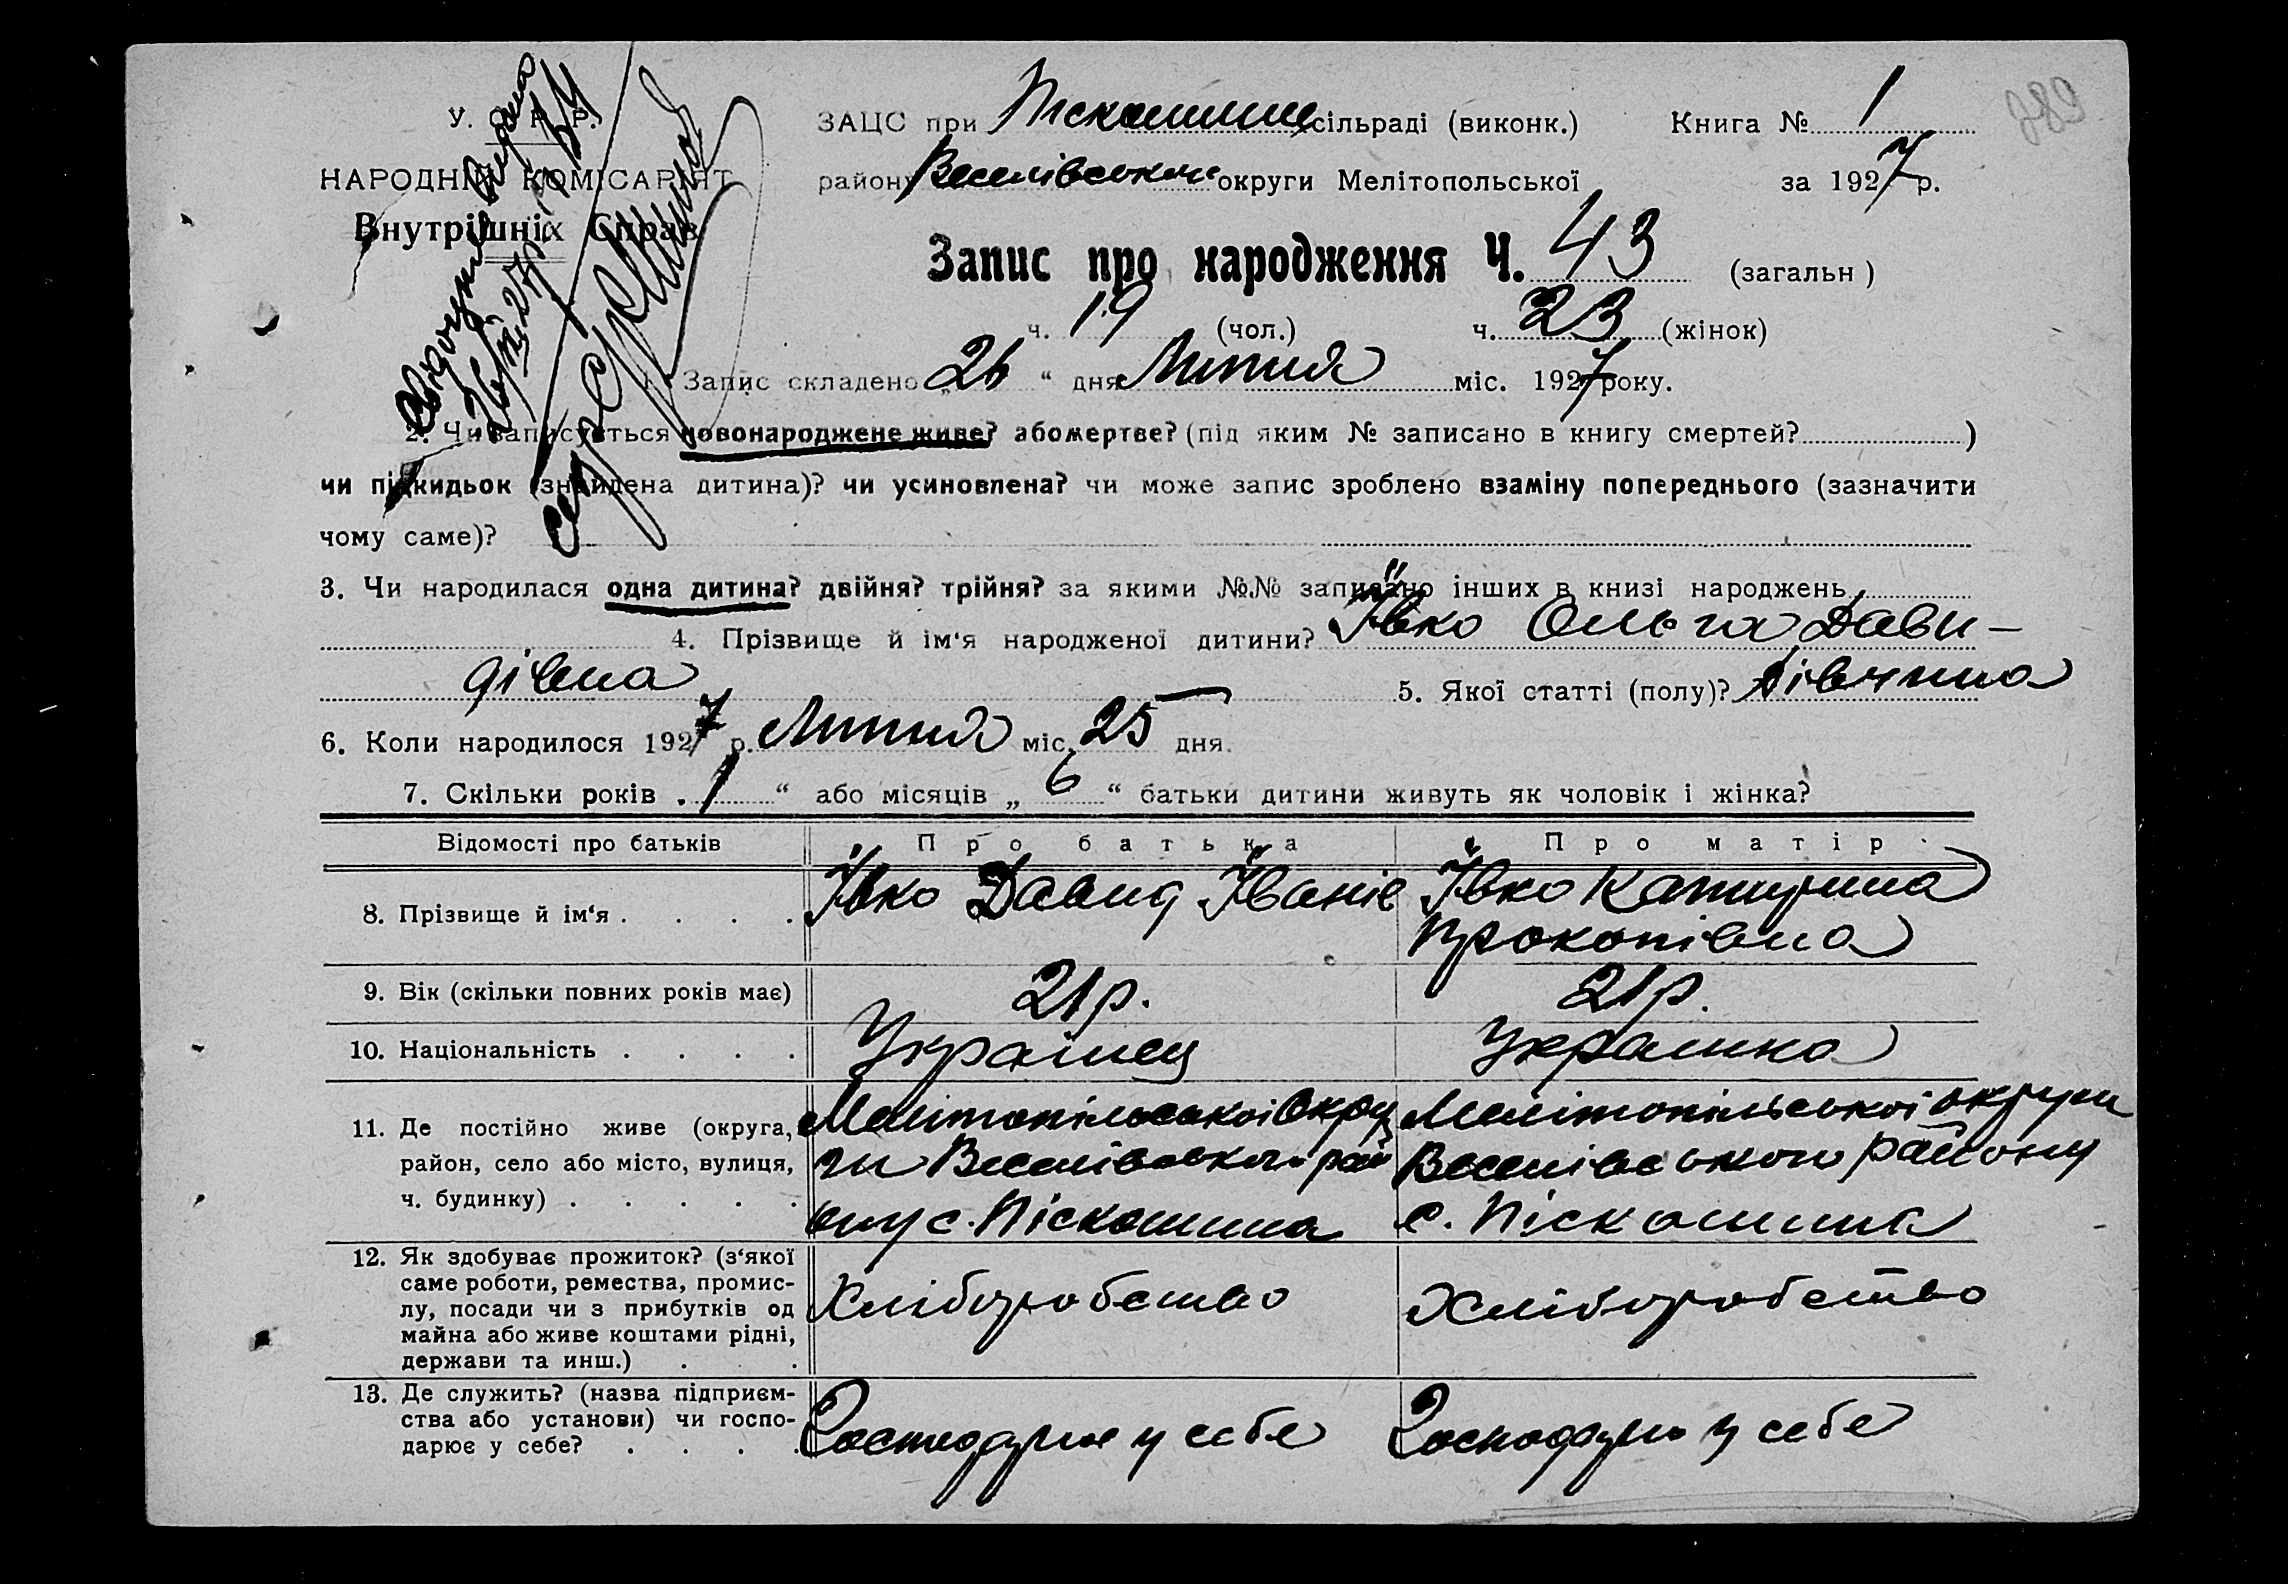 У. С. Р. Р.
НАРОДНІЙ КОМІСАРІЯТ
Внутрішніх Справ
Свідоцтво видано
26/VII 27р. № 64
ЗАЦС при Піскошине сільраді (виконк.) Книга № 1
району Веселівського округи Мелітопольської за 1927 р.
Запис про народження Ч. 43 (загальн)
ч. 19 (чол.) ч. 23 (жінок)
1. Запис складено „26“ дня Липня міс. 1927 року.
2. Чи записується новонароджене живе? або мертве? (під яким № записано в книгу смертей? )
чи підкидьок (знайдена дитина)? чи усиновлена? чи може запис зроблено взаміну попереднього (зазначити
чому саме)?
3. Чи народилася одна дитина? двійня? трійня? за якими №№ записано інших в книзі народжень
4. Прізвище й ім‘я народженої дитини? Ївко Ольга Дави-
дівна 5. Якої статті (полу)? Дівчина
6. Коли народилося 1927 р. Липня міс. 25 дня.
7. Скільки років „1“ або місяців „6“ батьки дитини живуть як чоловік і жінка?
Відомості про батьків Про батька Про матір
8. Прізвище й ім‘я . . . . Ївко Давид Їваніє Ївко Катирина
Прокопівна
9. Вік (скільки повних років має) 21р. 21р.
10. Національність . . . . Українец Украинка
11. Де постійно живе (округа, Мелітопільської Окру Мелітопільської округи
район, село або місто, вулиця, ги Веселівського рай Веселівського району
ч. будинку) . . . . . ону с. Піскошина с. Піскошина
12. Як здобуває прожиток? (з‘якої
саме роботи, ремества, промис-
лу, посади чи з прибутків од Хліборобство Хліборобство
майна або живе коштами рідні,
держави та инш.) . . .
13. Де служить? (назва підприєм-
ства або установи) чи госпо-
дарює у себе? . . . . Господарює у себе Господарює у себе